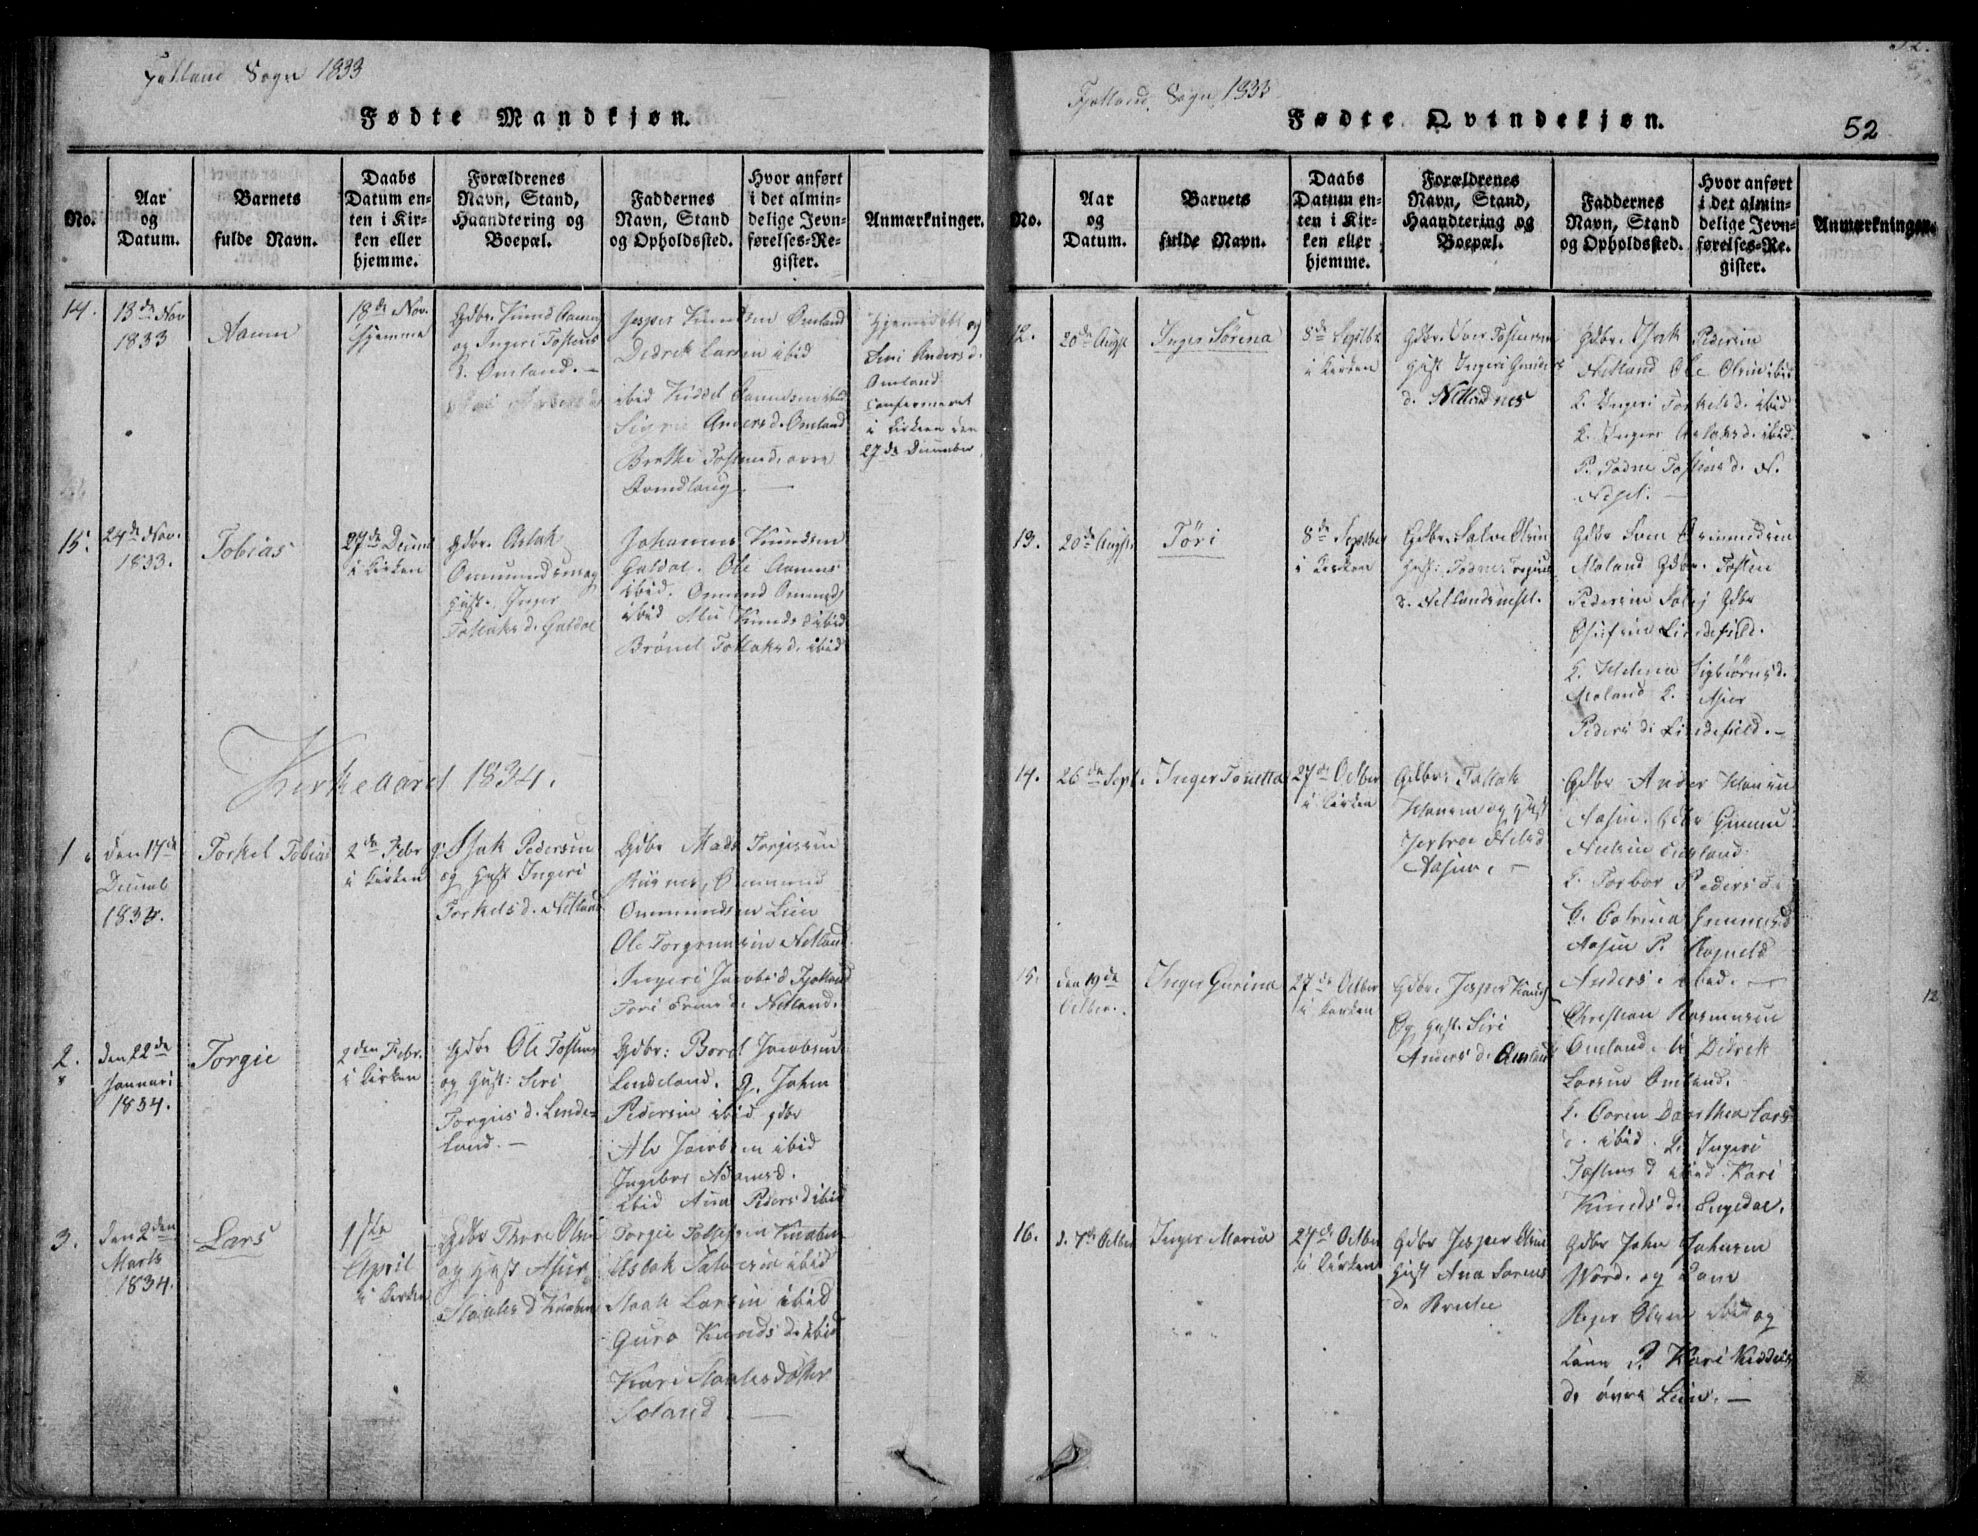 Fjotland Sogn 1833
Fødte Mandkjøn.
No.
Aar
og
Datum.
Barnets
fulde Navn.
Daabs
Datum en-
ten i Kir-
ken eller
hjemme.
Forældrenes
Navn, Stand,
Haandtering og
Boepæl.
Faddernes
Navn, Stand
og Opholdssted.
Hvor anført
i det almin-
delige Jevn-
førelses-Re-
gister.
Anmærkninger.
14.
13de Nov
1833
Aamn
18de Nov.
hjemme
Gdbr. Knud Aamns
og Ingeri Tostens
d. Omland. —
Jesper Knudsen Omland
Didrek Larsen ibid
ibid Kiddel Aamnsen ibid
Sigrie Anders d. Omland
Brethe Tostens d. øvre
Qvindlaug —
Hjemmedøbt og
Siri Anders d.
Omland
Confermeret
i Kirken den
27de December
15.
24de Nov.
1833.
Tobias
27de Decmb
i Kirken
Gdbr. Aslak
Ommundsen og
Hust. Inger
Tollaks d. Galdal
Johannes Knudsen
Galdal. Ole Aamns
ibid. Ommund Ommunds
ibid Knuds d ibid
Brønel Tollaks d. ibid
Kirkeaaret 1834.
1.
den 17de
Decmb
1834.
Torkel Tobias
2de Febr
i Kirken
g. Isak Pedersen
og Hust Ingeri
Torkels d. Netland
Gdbr Mads Torgiersen
Ommund
Ommundsen Lien
Ole Torgrimsen Netland
Ingeri Jacobs d Fjotland
Tori d. Netland.
2.
den 22de
Januari
1834.
Torgie
2den Febr.
i Kirken
Gdbr Ole Tostens
og Hust: Siri
Torgies d. Linde-
land. —
Gdbr: Borel Jacobsen
Lindeland. g. John
Pedersen ibid gdbr
Alv Jacobsen ibid
Ingebor Adams d.
ibid Ana Peders d ibid
3.
den 2den
Marts
1834.
Lars
1ste
April
i Kirken
Gdbr Thore Olsen
og Hust Asier
d Knaben
Torgie Tollefsen Knaben
Aslak Salvesen ibid
Larsen ibid
Guro Knuds d. ibid
Kari
Soland. —
Fjotland Sogn 1833
Fødte Qvindekjøn.
52
No.
Aar
og
Datum.
Barnets
fulde Navn.
Daabs
Datum en-
ten i Kir-
ken eller
hjemme.
Forældrenes
Navn, Stand,
Haandtering og
Boepæl.
Faddernes
Navn, Stand
og Opholdssted.
Hvor anført
i det almin-
delige Jevn-
førelses-Re-
gister.
Anmærkninger.
12.
20de Augst
Inger Sørena
8de Septbr
i Kirken
Gdbr. Iver Tostensen
Hust Ingeri Gunders
d. Netlandnes
Gdbr. Pedersen
Netland Ole Olsen ibid
K. Ingeri Torkels d. ibid
K. Ingeri Aslaks d. ibid.
P. Todne Tostens d. N.
Neset. —
13.
20de Augst.
Tøri
8de Septbr
i Kirken
Gdbr. Salve Olsen
Hust: Todne Torgius
d. Netlandsneset.
Gdbr Sven
Moland Gdbr. Tosten
Pedersen Gdbr
Lindefield.
K. Helena Sigbiørns d.
Moland K. Asier
Peders d. Lindefield. —
14.
26de Sept.
Inger Tonetta
27de Octber
i Kirken
Gdbr: Tollak
Hansen og Hust
Aasen. —
Gdbr Anders Hansen
Aasen. Gdbr Gunnu
Nielsen Omland.
K. Torbor Peders d.
K. Catrina
Aasen P. Ragneld
Anders. ibid. —
15.
den 19de
Octber.
Inger Gurina
27de Octber
i Kirken
Gdbr. Jesper Knuds
Og Hust. Siri
Anders d. Omland
Christian Rasmusen
Omland. U. Didrik
Larsen Omland.
K. Caren Dorthea Lars
d. ibid. K. Ingeri
Tostens d ibid. Kari
Knuds d. Engedal.
16.
d. 7de Octber
Inger Maria
27de Octber
i Kirken
Gdbr Jesper Olsen
Hust Ana Sørens
d.
Gdbr John Johnsen
og Kone
Olsen ibid og
Kone P. Kari Kiddels
d. øvre Lien. —
12